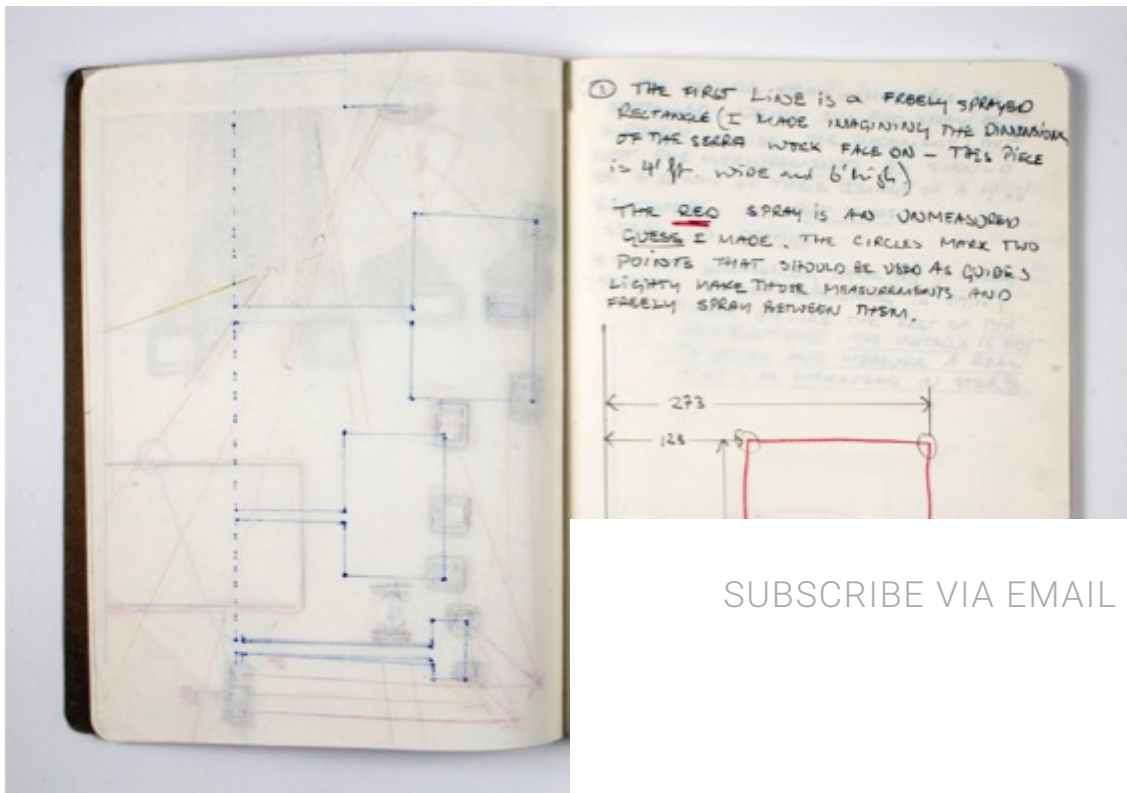 ① THE FIRST LINE is a FREELY SPRAYED
RECTANGLE (I MADE IMAGINING THE DIMENSIONS
OF THE SERRA WORK FACE ON – THIS PIECE
is 4' ft. WIDE and 6' high)
THE RED SPRAY is AN UNMEASURED
GUESS I MADE. THE CIRCLES MARK TWO
POINTS THAT SHOULD BE USED AS GUIDES
LIGHTLY MAKE THOSE MEASUREMENTS AND
FREELY SPRAY BETWEEN THEM.
273
128
SUBSCRIBE VIA EMAIL